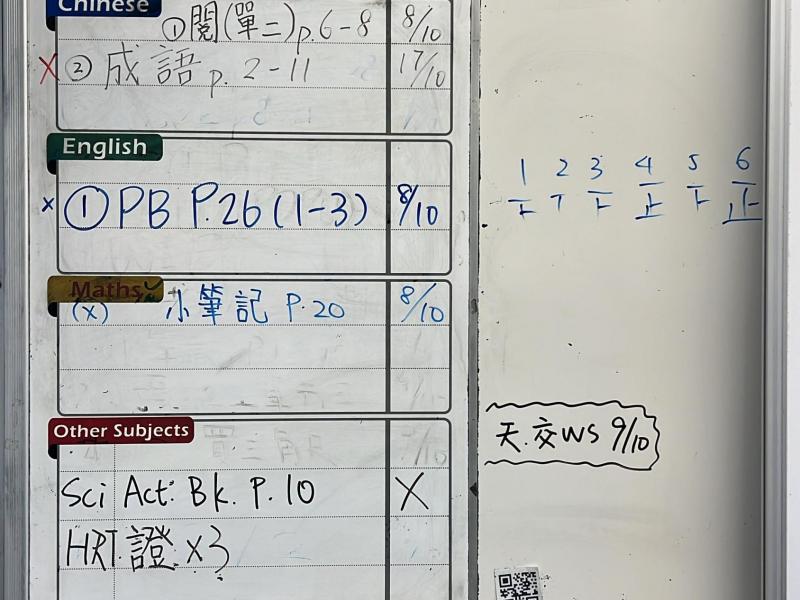 Chinese
① 閱(單二)p.6-8 8/10
X ② 成語 p.2-11 17/10
English
x ① PB P.26(1-3) 8/10
Maths
(x) 小筆記 P.20 8/10
Other Subjects
Sci Act. Bk. P.10 X
HRT 證 x3
1 2 3 4 5 6
天.交WS 9/10